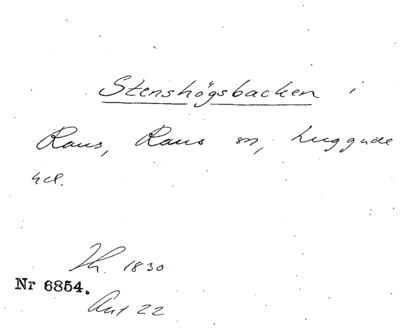 Stenshögsbacken i
Raus, Raus sn, Luggude
hd.
Th. 1830
Nr 6854.
Ant 22